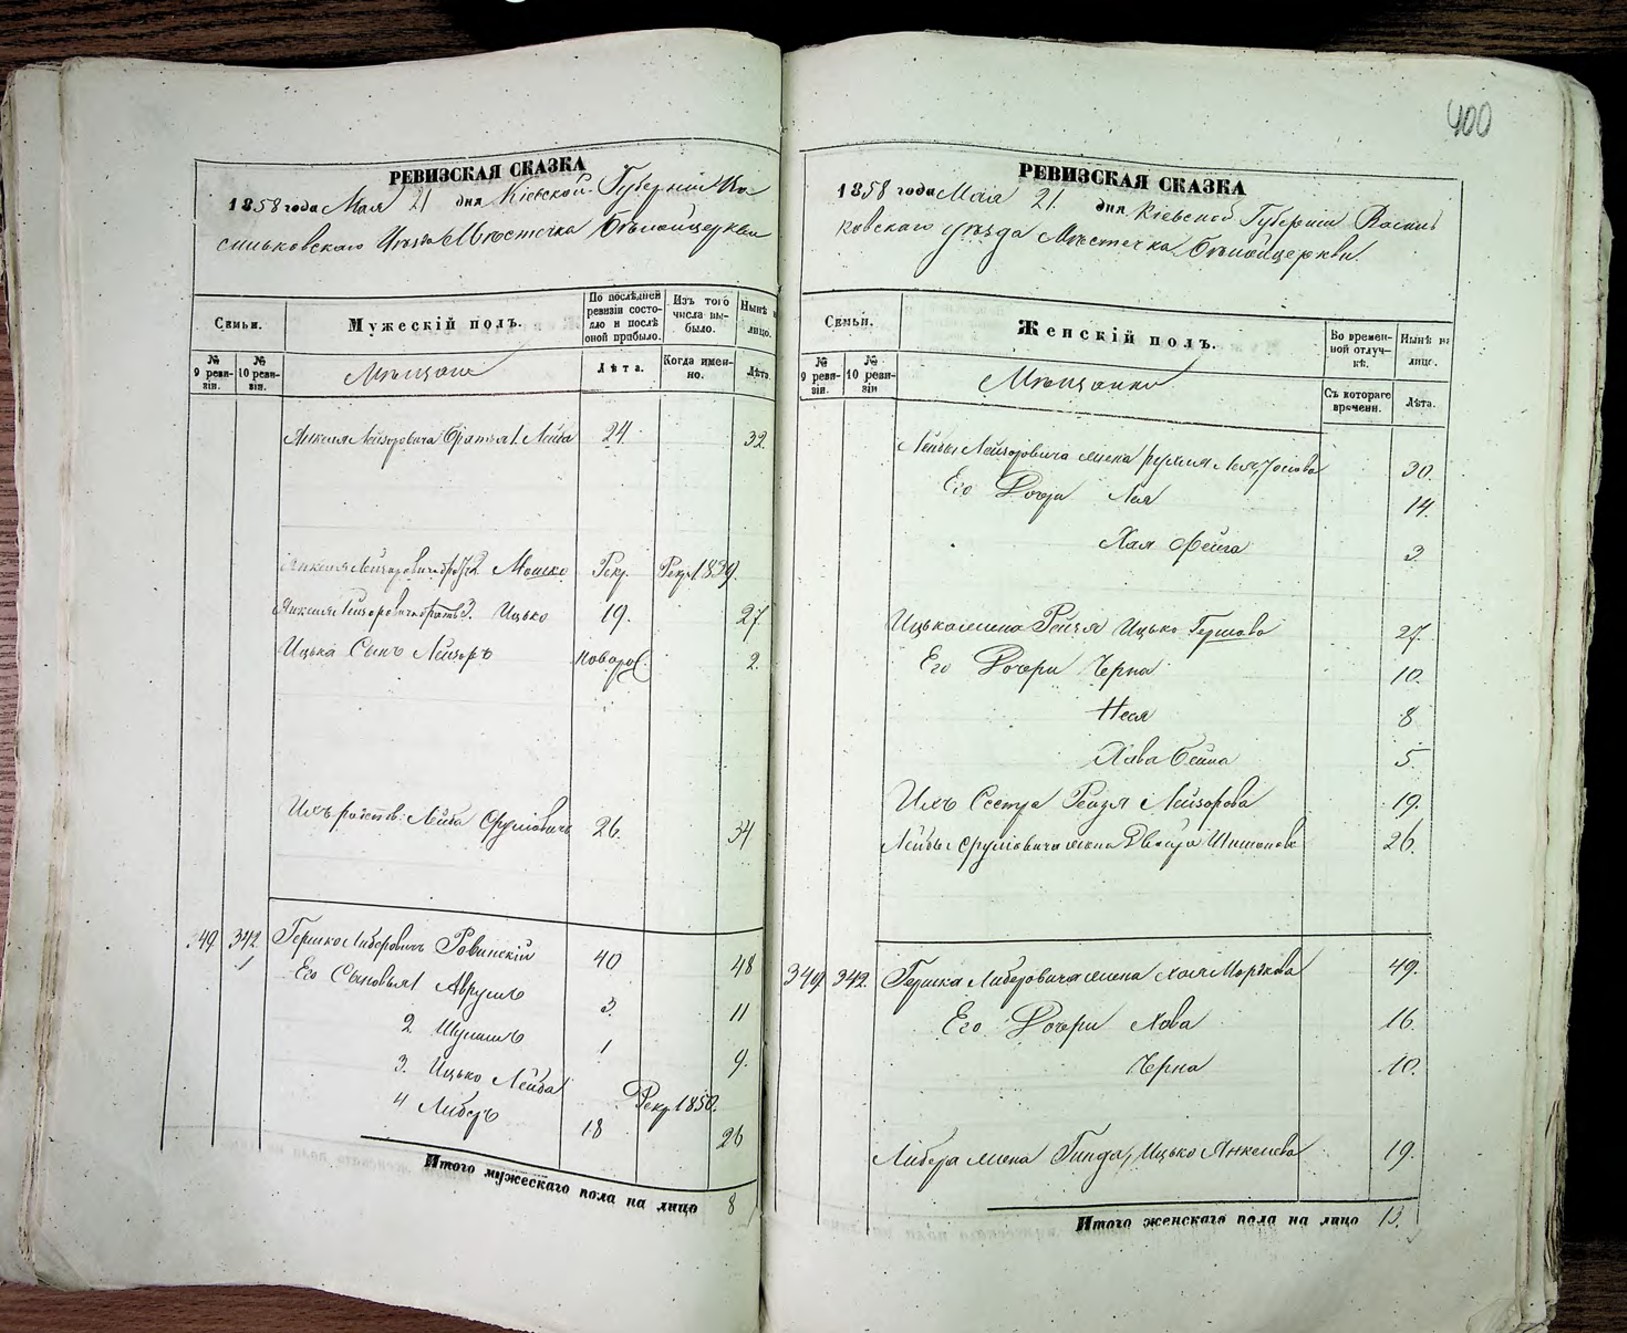 400
РЕВИЗСКАЯ СКАЗКА
1858 года Мая 21 дня Кіевской Губерніи Ва-
сильковскаго Уѣзда Мѣстечка Бѣлойцеркви
Семьи.
Мужескій полъ.
По послѣдней ревизіи состояло и послѣ оной прибыло.
Изъ того числа выбыло.
Нынѣ на лицо.
№ 9 ревизіи.
№ 10 ревизіи.
Мѣщане
Лѣта.
Когда именно.
Лѣта.
Янкеля Лейзоровича братья 1. Лейба 24 32.
Янкеля Лейзоровича братъ 2 Мошко Рекр. Рекр. 1839.
Янкеля Лейзоровича братъ 3. Ицько 19. 27.
Ицька Сынъ Лейзоръ новорож. 2.
Ихъ Лейба Срулiовичъ 26. 34
349 342 Гершко Либеровичъ Ровинскій 40 48
1
Его Сыновья 1 Аврумъ 3. 11
2 Шулимъ 1 9.
3. Ицько Лейба Рекр. 1850.
4 Либеръ 18 26
Итого мужескаго пола на лицо 8
РЕВИЗСКАЯ СКАЗКА
1858 года Мая 21 дня Кіевской Губерніи Василь
ковскаго уѣзда Мѣстечка Бѣлойцеркви.
Семьи.
Женскій полъ.
Во временной отлучкѣ.
Нынѣ на лицо.
№ 9 ревизіи.
№ 10 ревизіи
Мѣщанки
Съ котораго времени.
Лѣта.
Лейбы Лейзоровича жена Рухля Лея, Іосіова 30.
Его Дочери Лая 14.
Хая Фейга 3
Ицька жена Рейзя Ицько Гершова 27.
Его Дочери Черна 10.
Неся 8
Хава Бейла 5.
Ихъ Сестра Рейзя Лейзорова 19.
Лейбы Срулiовича жена Двойра 26.
349. 342. Гершка Либеровича жена Хая Моръкова 49.
Его Дочери Хова 16.
Черна 10.
Либера жена Гинда, Ицько Янкелева 19.
Итого женскаго пола на лицо 13.